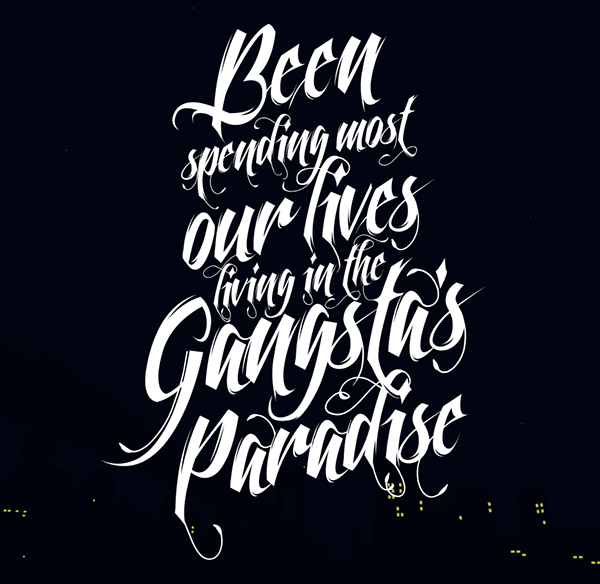 Been
spending most
our lives
living in the
Gangsta's
Paradise